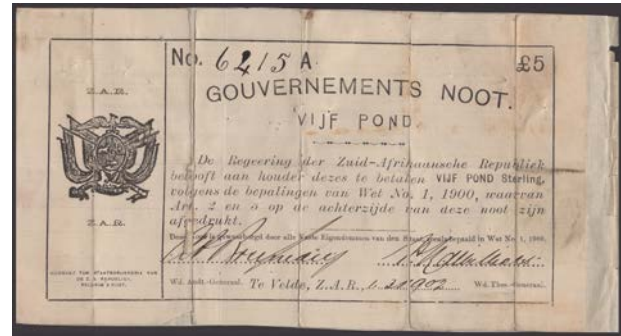 No. 6215 A.
£5
Z.A.R.
GOUVERNEMENTS NOOT.
VIJF POND.
De Regeering der Zuid-Afrikaansche Republiek
belooft aan houder dezes te betalen VIJF POND Sterling,
volgens de bepalingen van Wet No. 1, 1900, waarvan
Art. 2 en 5 op de achterzijde van deze noot zijn
afgedrukt.
Z.A.R.
Deze is gewaarborgd door alle Vaste Eigendommen van den Staat, zooals bepaald in Wet No. 1, 1900.
Wd. Audt.-Generaal. Te Velde, Z.A.R., 1902 Wd. Thes.-Generaal.
GEDRUKT TER STAATSDRUKKERIJ VAN
DE Z. A. REPUBLIEK,